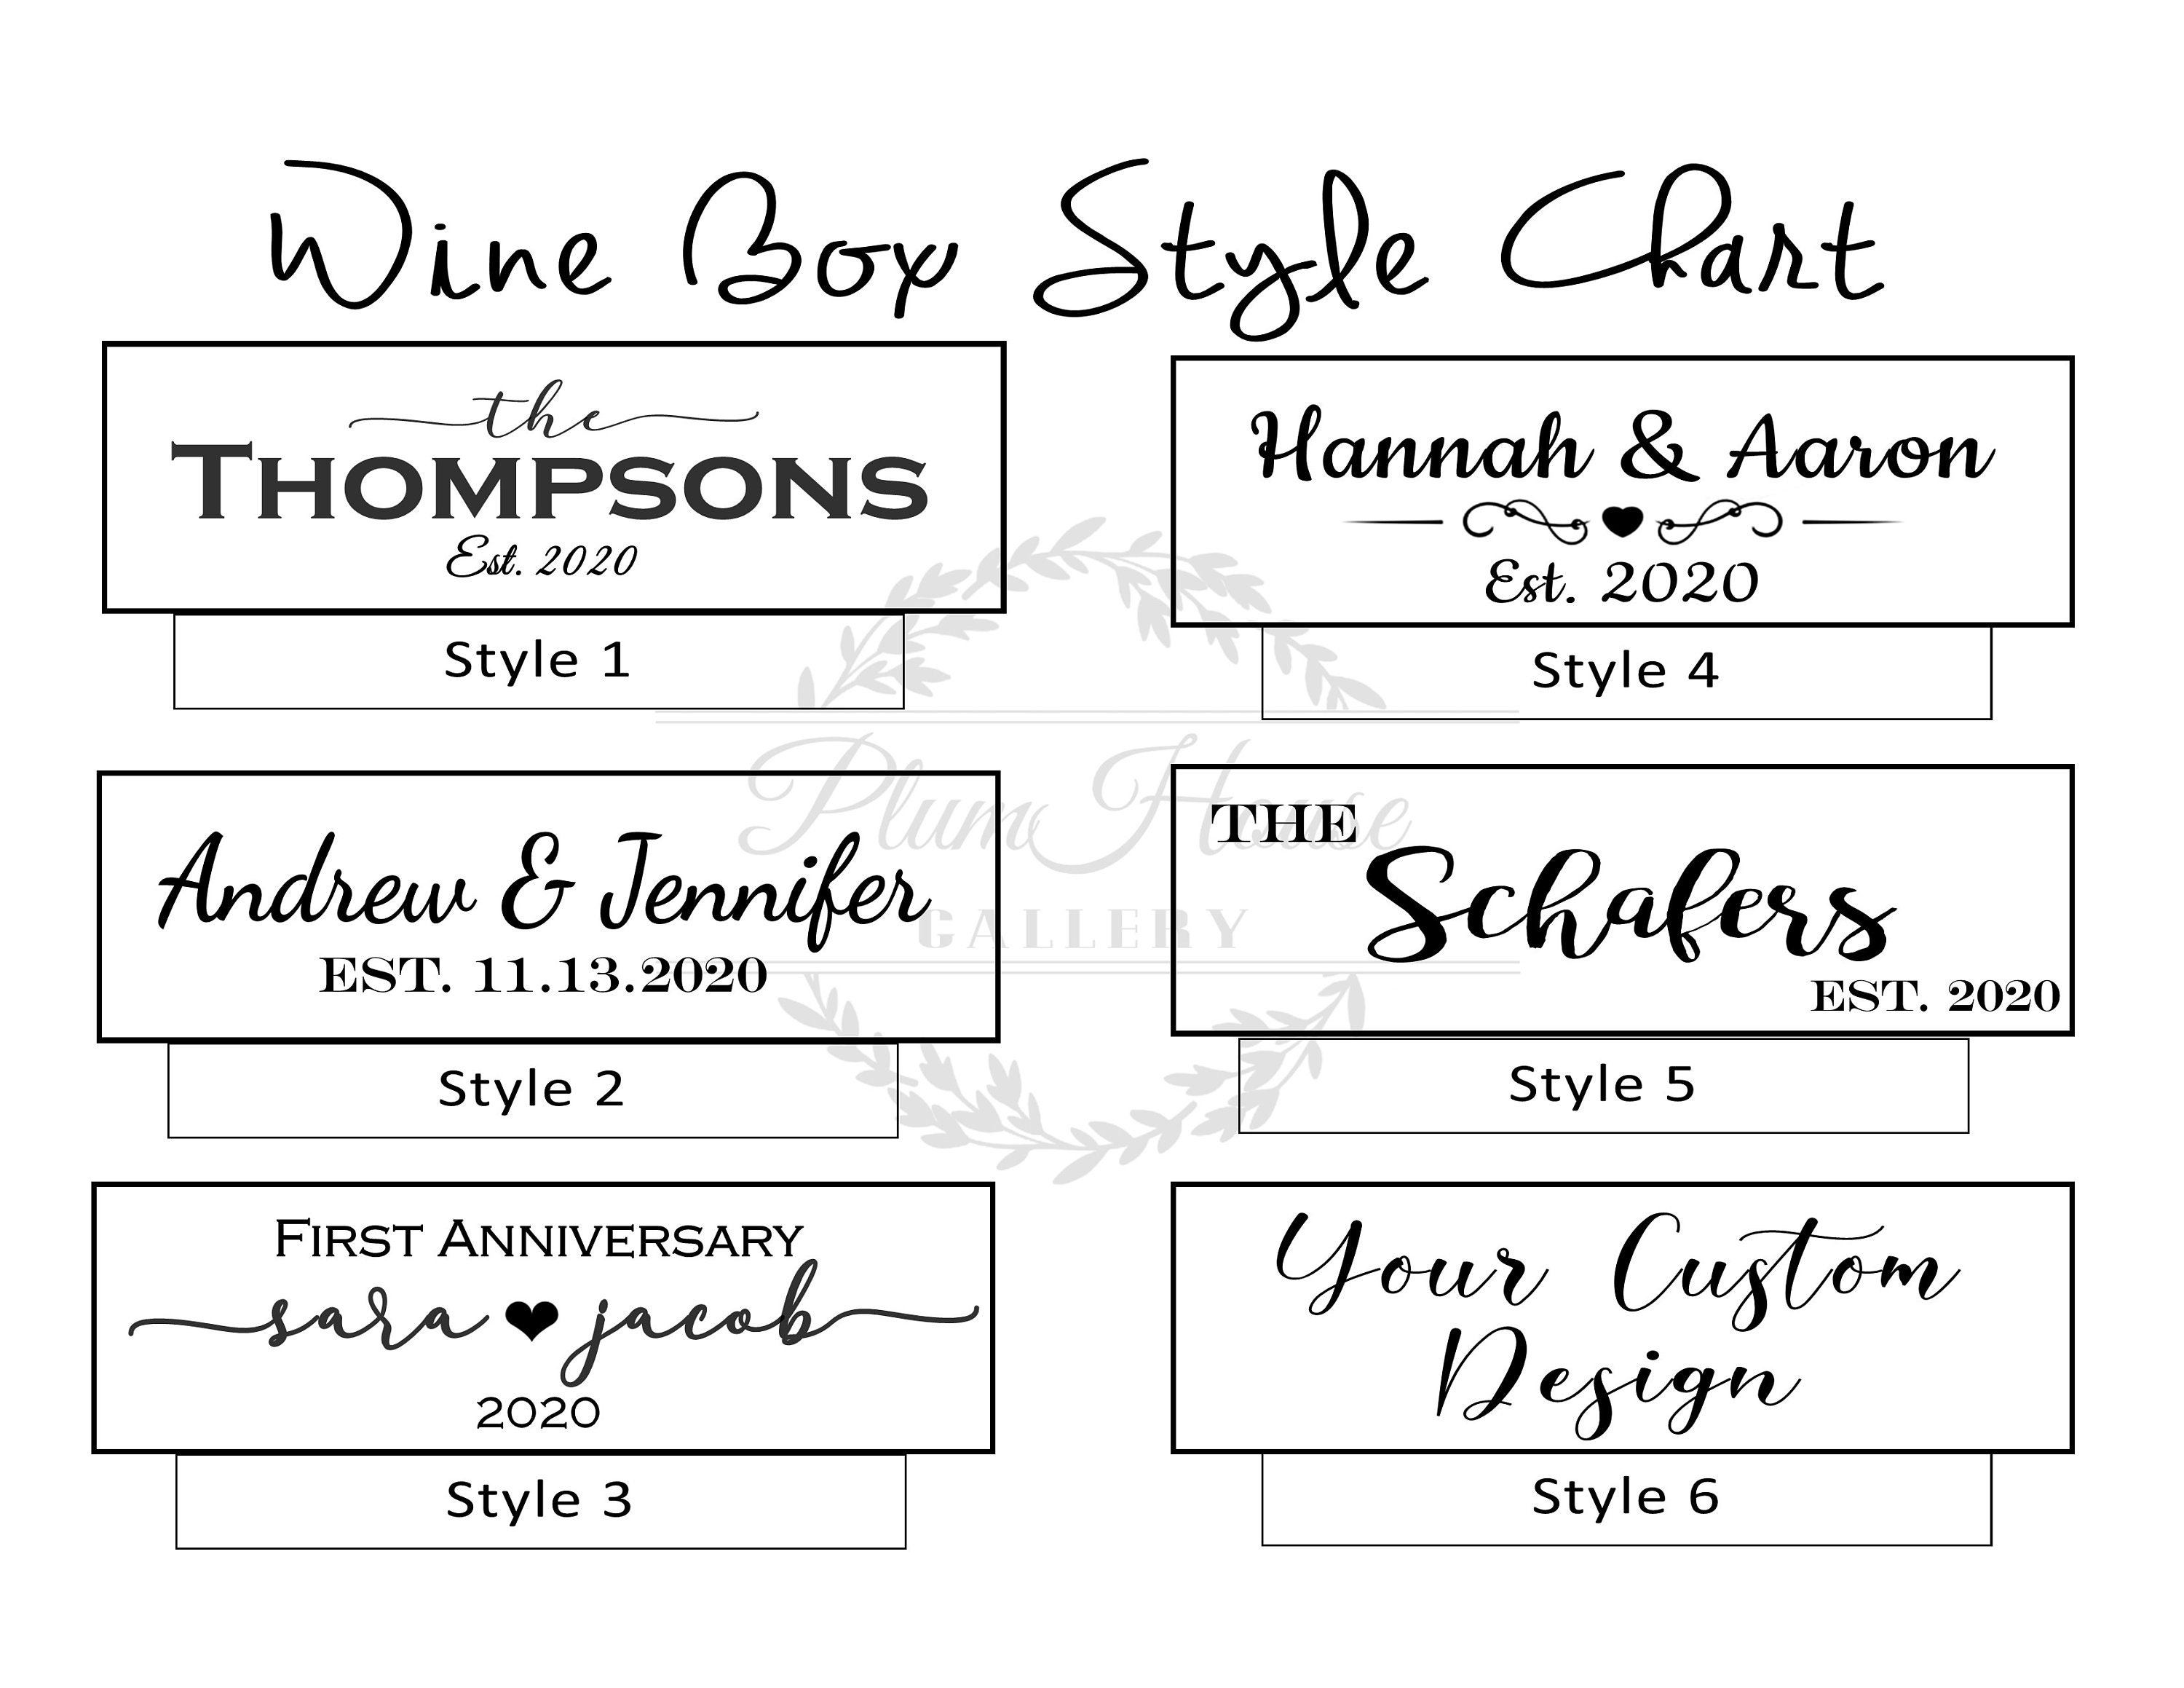 Wine Box Style Chart
the
THOMPSONS
Est. 2020
Style 1
Andrew & Jennifer
EST. 11.13.2020
Style 2
FIRST ANNIVERSARY
sara ♥ jacob
2020
Style 3
Hannah & Aaron
Est. 2020
Style 4
THE
Schafers
EST. 2020
Style 5
Your Custom
Design
Style 6
Plum House
GALLERY